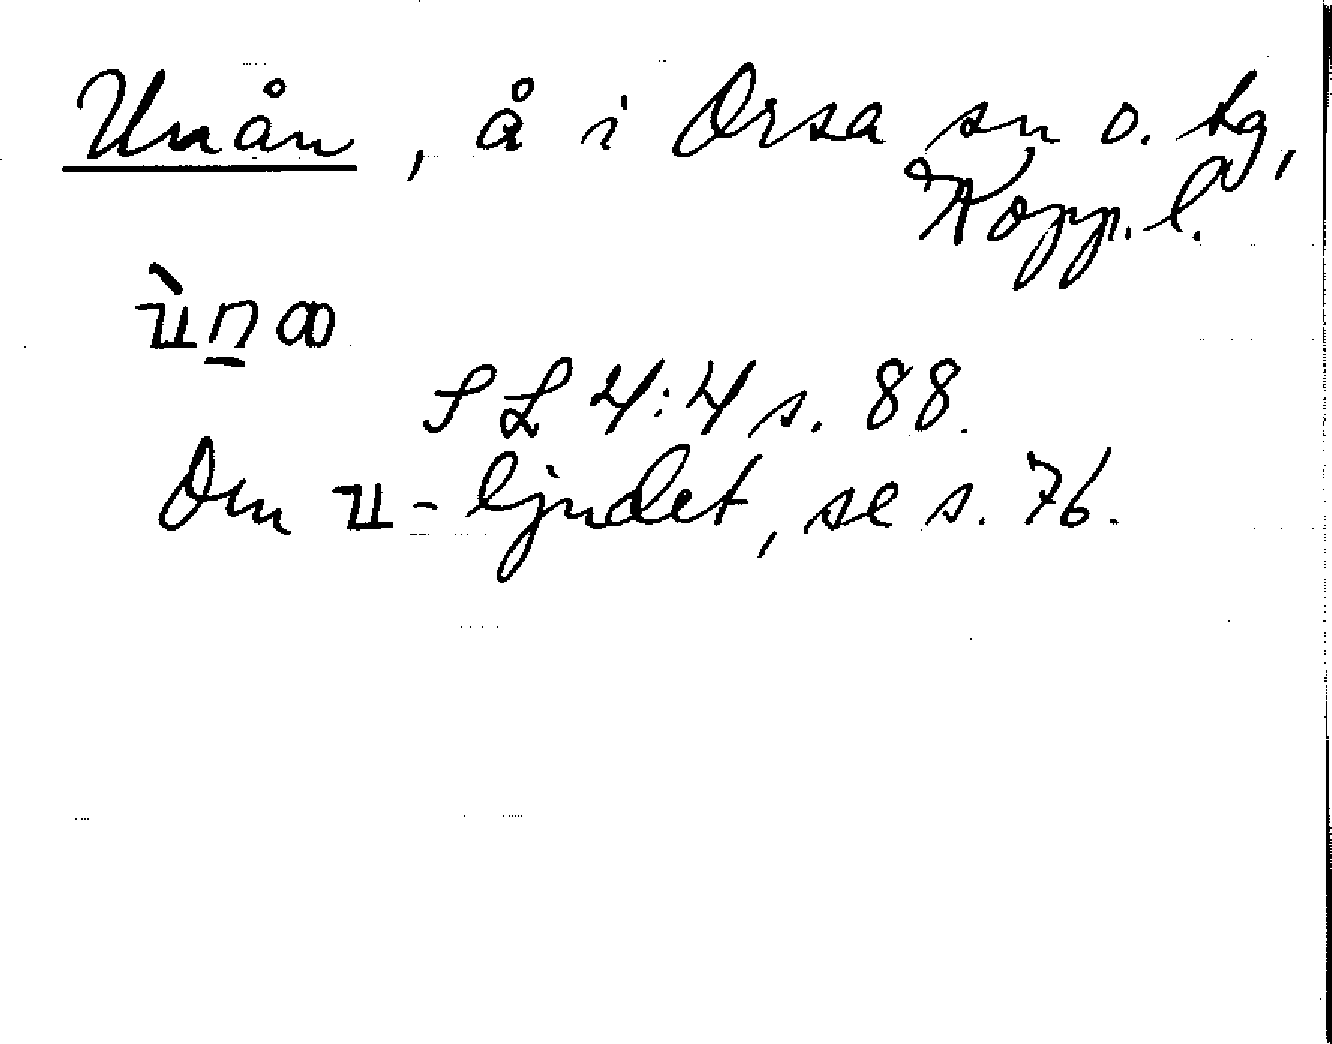 Unån, å i Orsa sn o. tg,
Kopp. l.
SL 4:4 s. 88.
Om ɯ-ljudet, se s. 76.